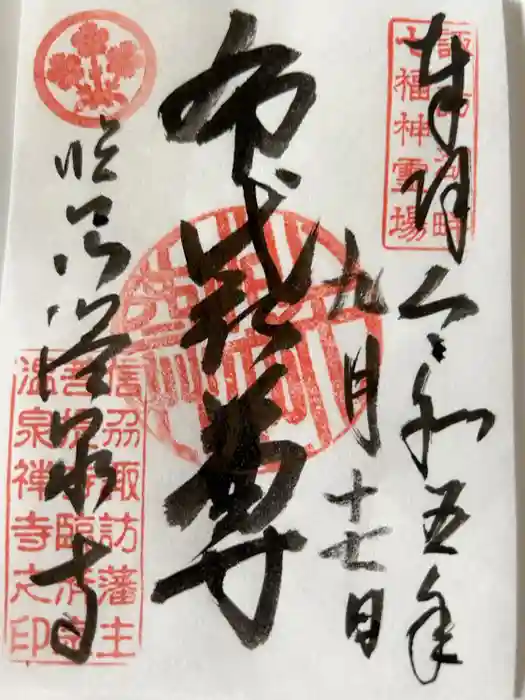 奉拝 令和五年
九月
十七日
諏訪湖畔
七福神霊場
布袋尊
温泉寺
信刕諏訪藩主
菩提寺臨済宗
温泉禅寺之印